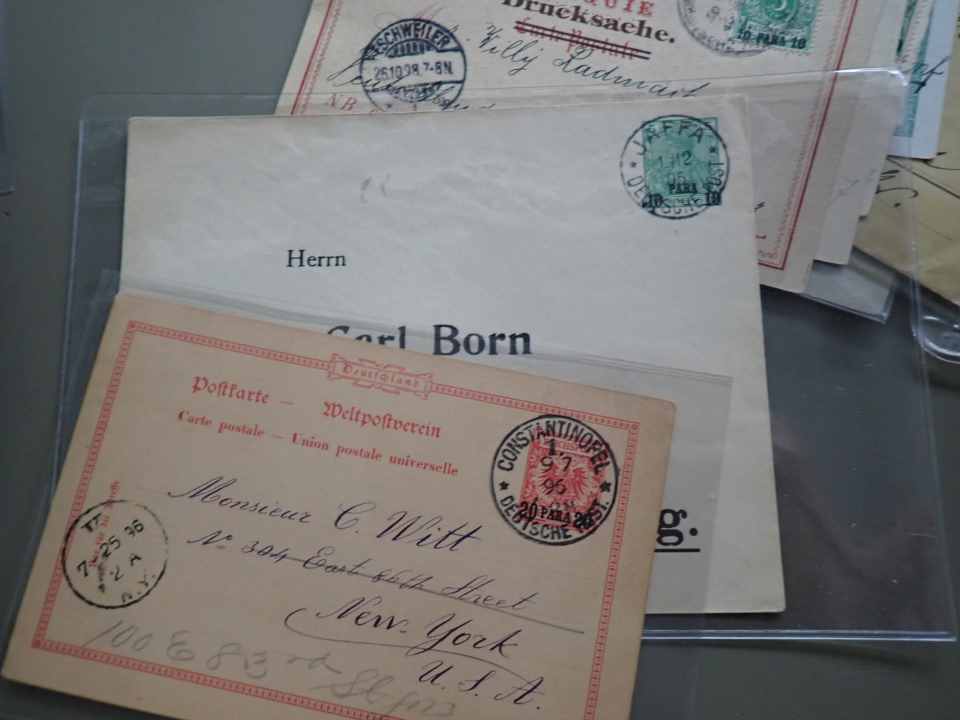 QUIE
Drucksache.
Carte Postale
10 PARA 10
ESCHWEILER
26.10.98.7-8N.
Willy Ladmart
NB
JAFFA
DEUTSCHE POST
10 PARA 10
Herrn
Carl Born
g.
Deutschland
Postkarte — Weltpostverein
Carte postale — Union postale universelle
CONSTANTINOPEL
1.
9.7
96
20 PARA 20
DEUTSCHE POST.
Monsieur C. Witt
No 304 East 86th Street
New-York
U. S. A.
7 25 96
2 A
N.Y.
100 E 83rd St